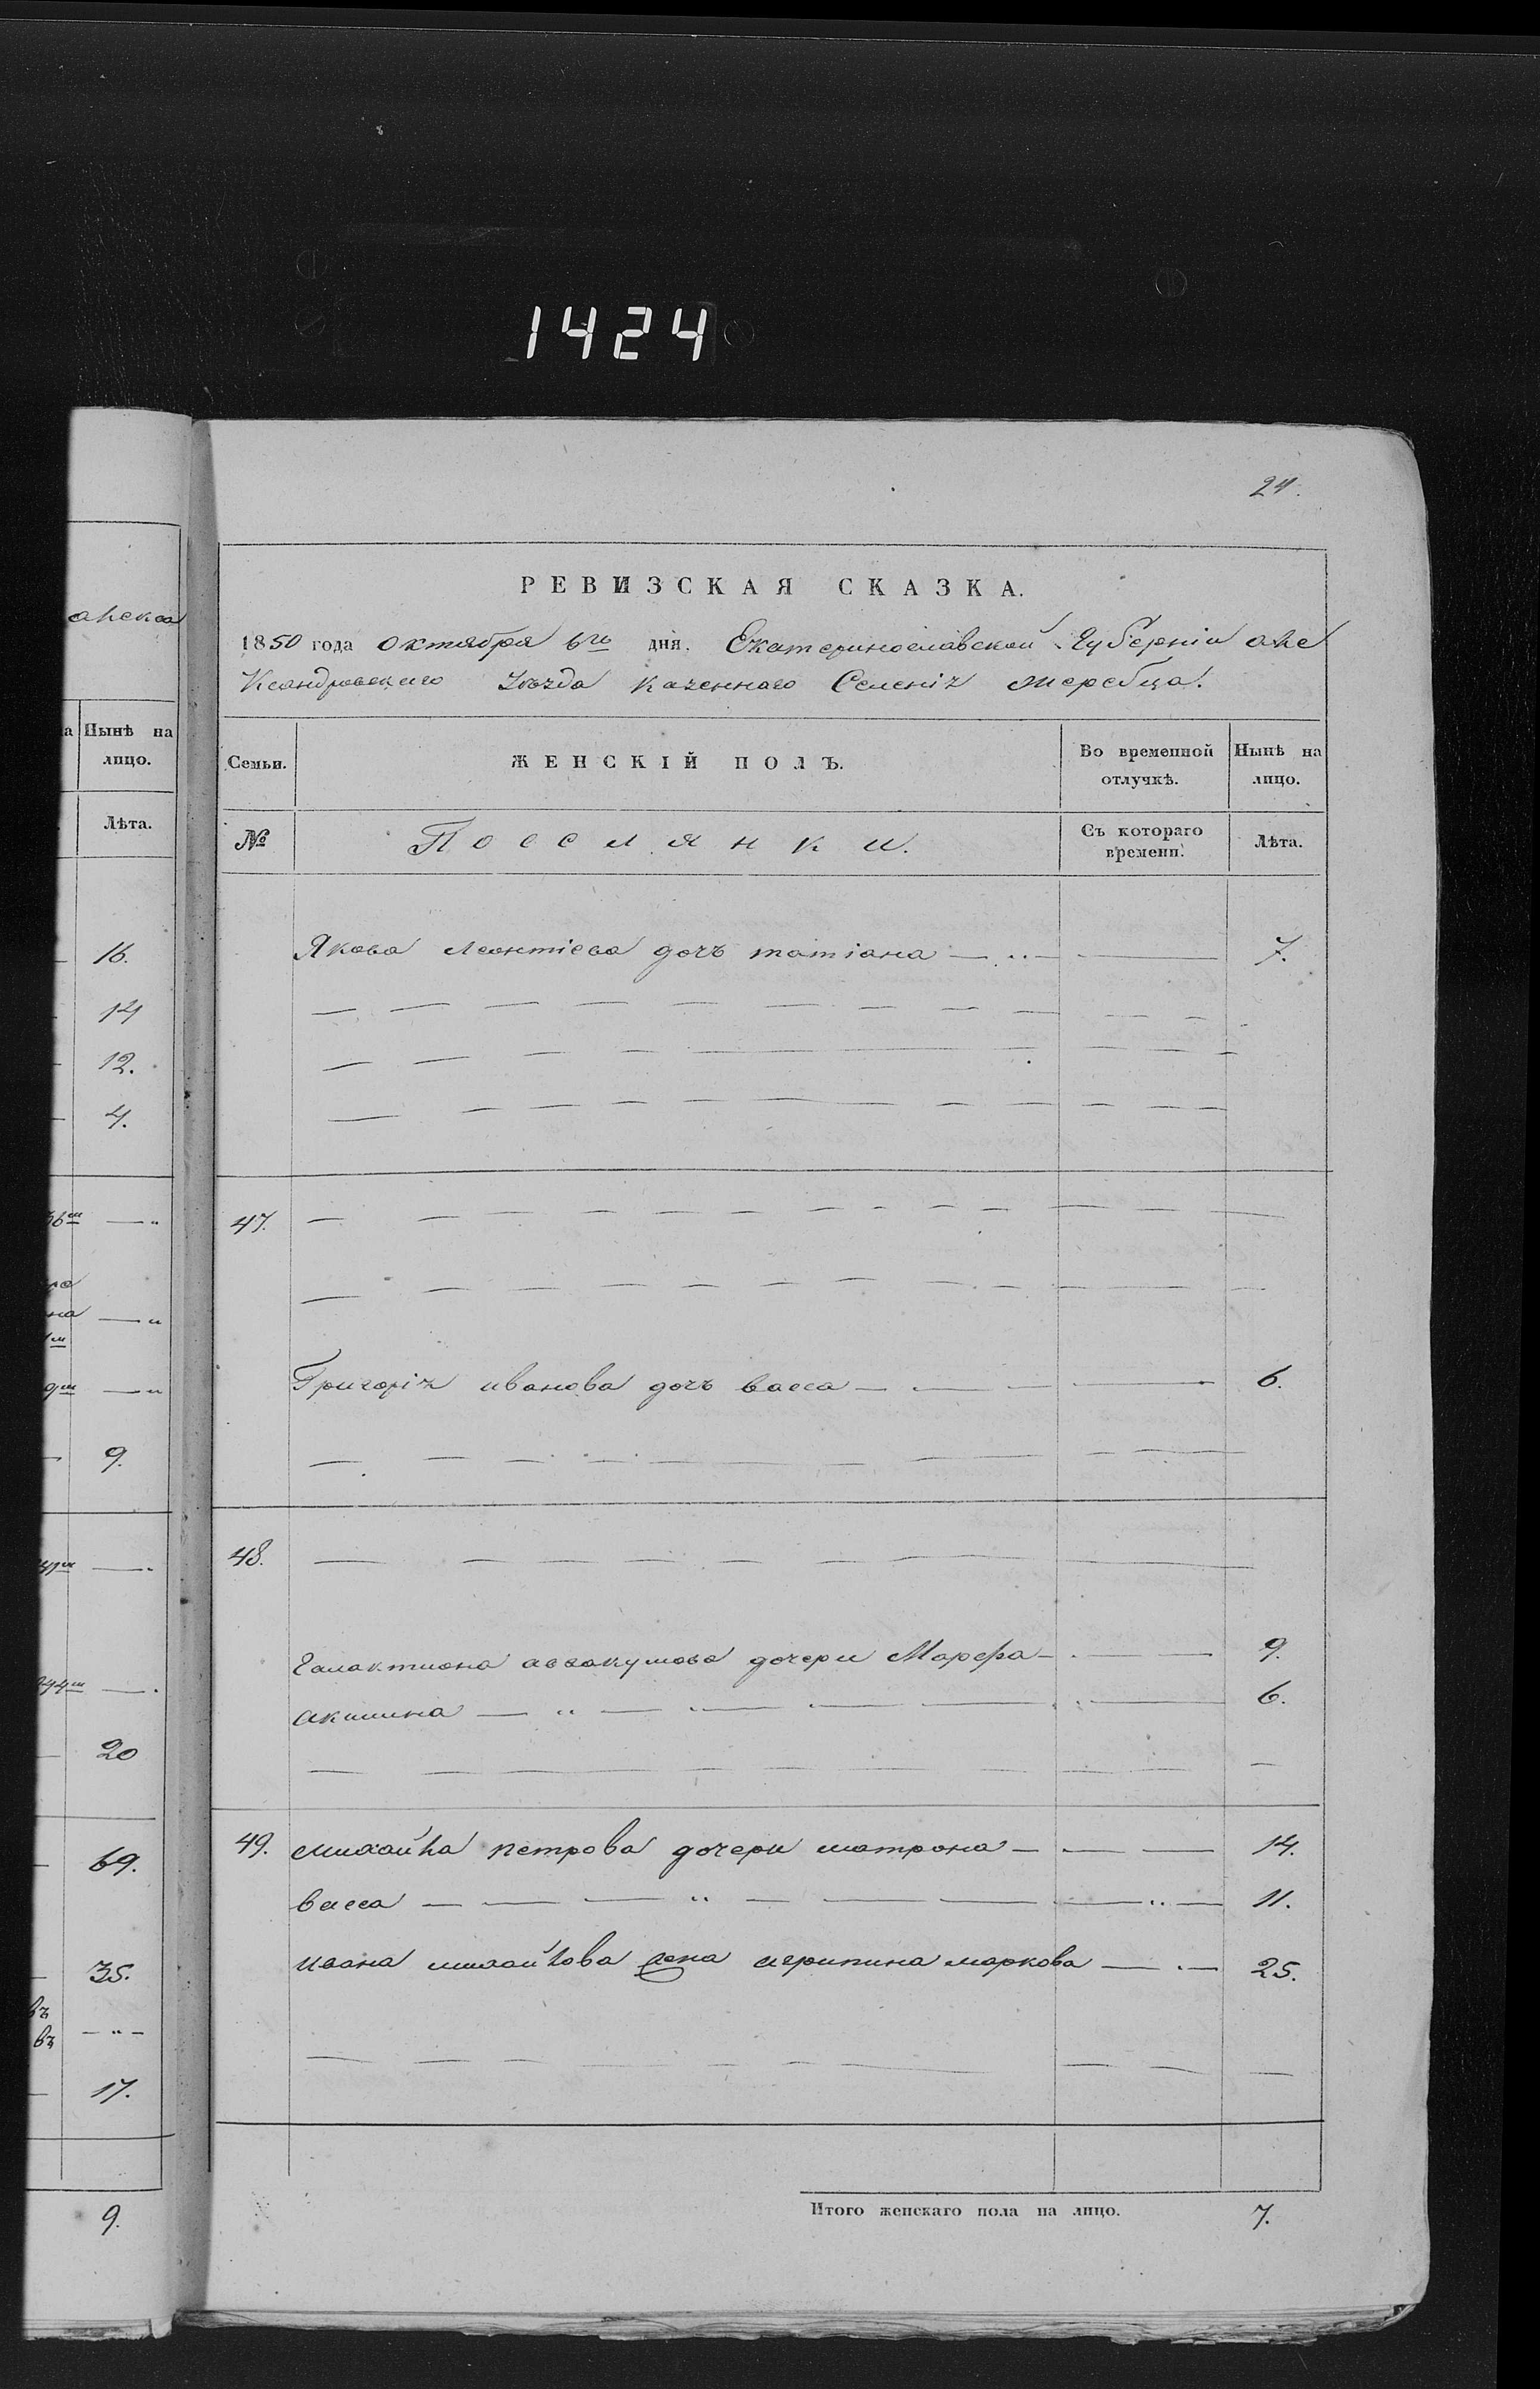 1424
24.
РЕВИЗСКАЯ СКАЗКА.
1850 года октября 6го дня. Екатеринославской Губерніи але
Ксандровскаго Уѣзда казеннаго Селенія жеребца.
алекса
Нынѣ на лицо.
Лѣта.
16.
14
12.
4.
9.
20
69.
35.
въ
въ
17.
9.
Семьи.
ЖЕНСКІЙ ПОЛЪ.
Во временной отлучкѣ.
Нынѣ на лицо.
№
Поселянки.
Съ котораго времени.
Лѣта.
Якова леонтіева дочь татіана — 7.
47.
Григорія иванова дочь васса — 6.
48.
Галактиона аввакумова дочери Марфа — 9.
акилина — 6.
49. михайла петрова дочери матрона — 14.
васса — 11.
ивана михайлова жена агрипина маркова — 25.
Итого женскаго пола на лицо. 7.